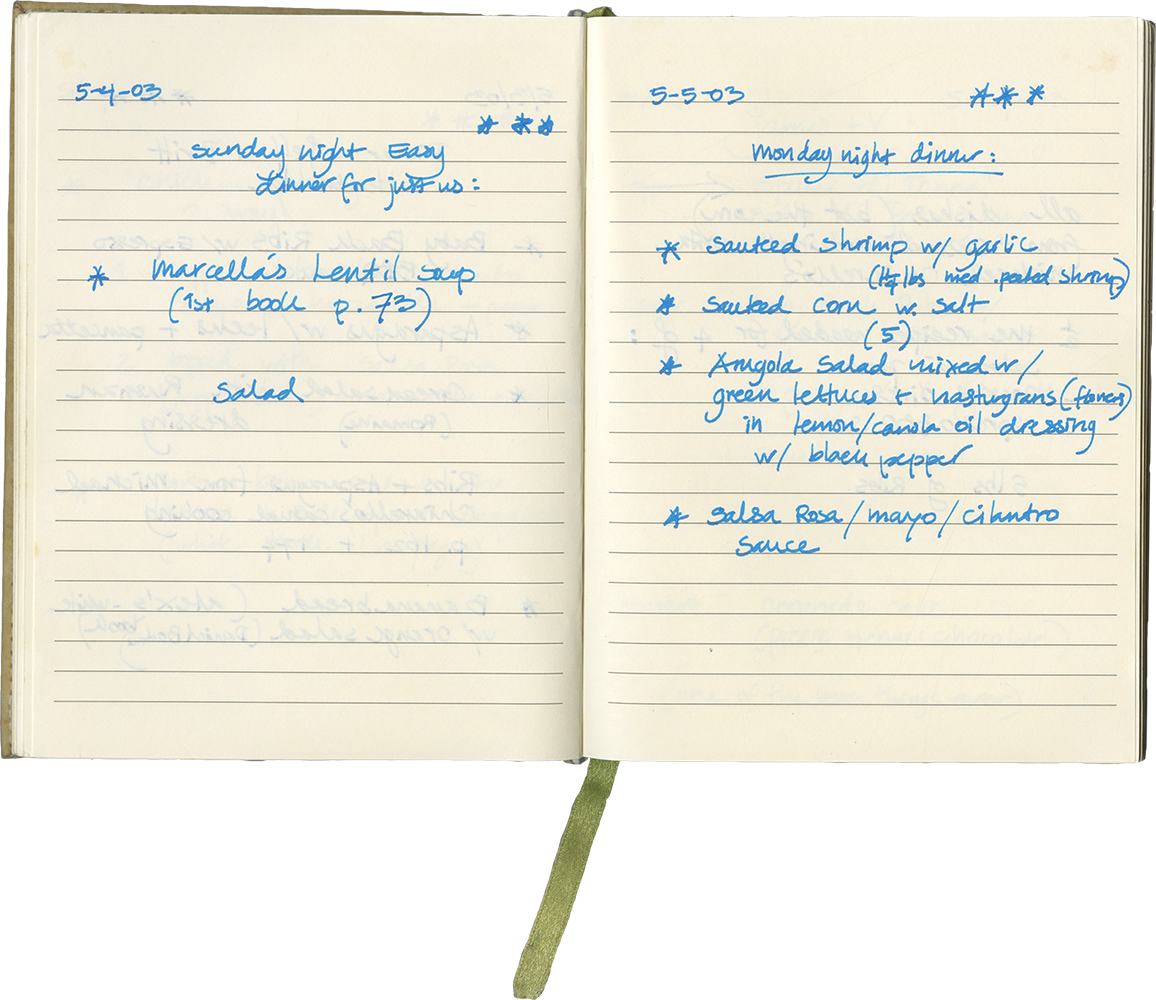 5-4-03
* * *
Sunday night Easy
dinner for just us:
* Marcella's Lentil Soup
(1st book p. 73)
Salad
5-5-03 * * *
Monday night dinner:
* Sauteed shrimp w/ garlic
lbs med. peeled shrimp)
* Sauteed corn w. salt
(5)
* Arugola Salad mixed w/
green lettuces + nasturgians (flowers)
in lemon/canola oil dressing
w/ black pepper
* Salsa Rosa/mayo/cilantro
sauce